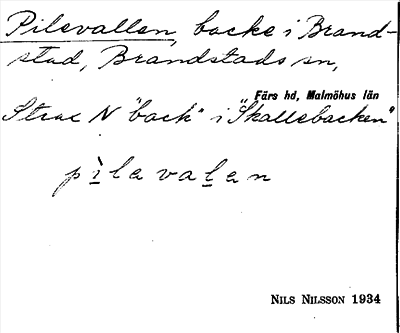 Pilevallen, backe i Brand-
stad, Brandstads sn,
Färs hd, Malmöhus län
Strax N "back" i "Skallebacken"
pìlevalen
NILS NILSSON 1934